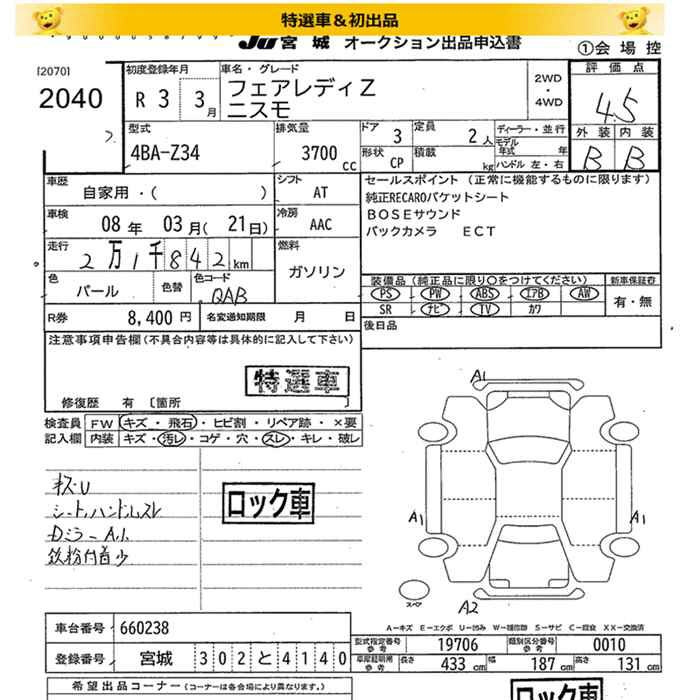 特選車＆初出品
JU 宮 城 オークション出品申込書
①会 場 控
[2070]
2040
初度登録年月
R 3 3月
車名・グレード
フェアレディZ
ニスモ
2WD
・
4WD
評 価 点
4.5
外 装 内 装
B B
型式
4BA-Z34
排気量
3700 cc
ドア 3
定員 2 人
形状 CP
積載 kg
ディーラー・並 行
モデル年式 年
ハンドル 左・右
車歴
自家用 ・（ ）
シフト AT
車検
08 年 03 月( 21 日)
冷房 AAC
走行
2万1千842 km
燃料
ガソリン
色
パール
色替
色コード
QAB
R券 8,400 円
名変通知期限 月 日
セールスポイント （正常に機能するものに限ります）
純正RECAROバケットシート
BOSEサウンド
バックカメラ ECT
装備品（純正品に限り〇をつけてください）
新車保証書
PS PW ABS エアB AW
SR ナビ TV カワ
有・無
後日品
注意事項申告欄（不具合内容等は具体的に記入して下さい）
特選車
修復歴 有 〔箇所
検査員
記入欄
FW キズ ・ 飛石 ・ ヒビ割 ・ リペア跡 ・ ×要
内装 キズ・汚レ・コゲ・穴・スレ・キレ・破レ
キズ・U
シート,ハンドルスレ
Dミラー A1
鉄粉付着少
ロック車
A1
A1
A1
A2
スペア
A－キズ E－エクボ U－凹み W－補修跡 S－サビ C－腐食 XX－交換済
車台番号 660238
登録番号 宮城 302と4140
型式指定番号 参考 19706
類別区分番号 参考 0010
車庫証明用 参考
長さ 433 cm 幅 187 cm 高さ 131 cm
希望出品コーナー（コーナーは各会場により異なります。）
ロック車